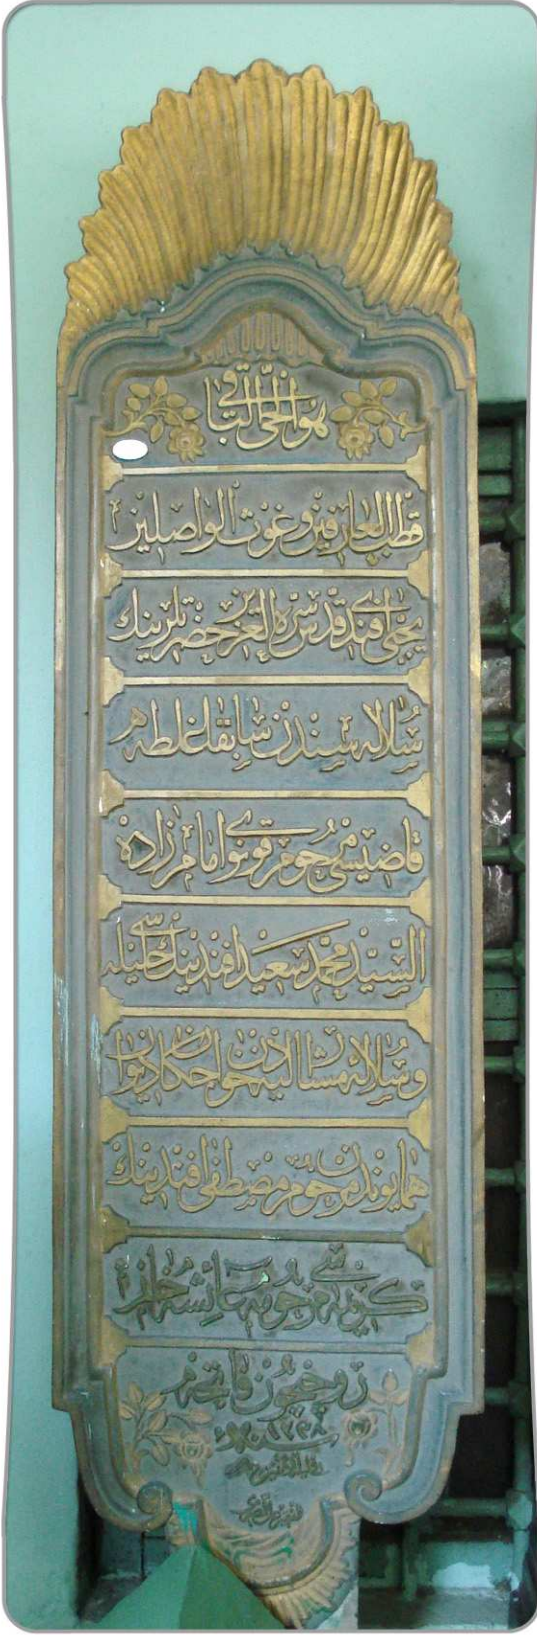 هو الحي الباقي
قطب العارفين وغوث الواصلين
يحيى افندى قدس سره العزيز حضرتلرينك
سلاله سندن سابقا غلطه
قاضيسى مرحوم قونوى امام زاده
السيد محمد سعيد افندينك حليله سى
وسلالۀ مشار اليه دن خواجكان ديوان
همايوندن مرحوم مصطفى افندينك
كريمه سى مرحومه عائشه خانم
روحيچون فاتحه
سنه ١٢٣٨